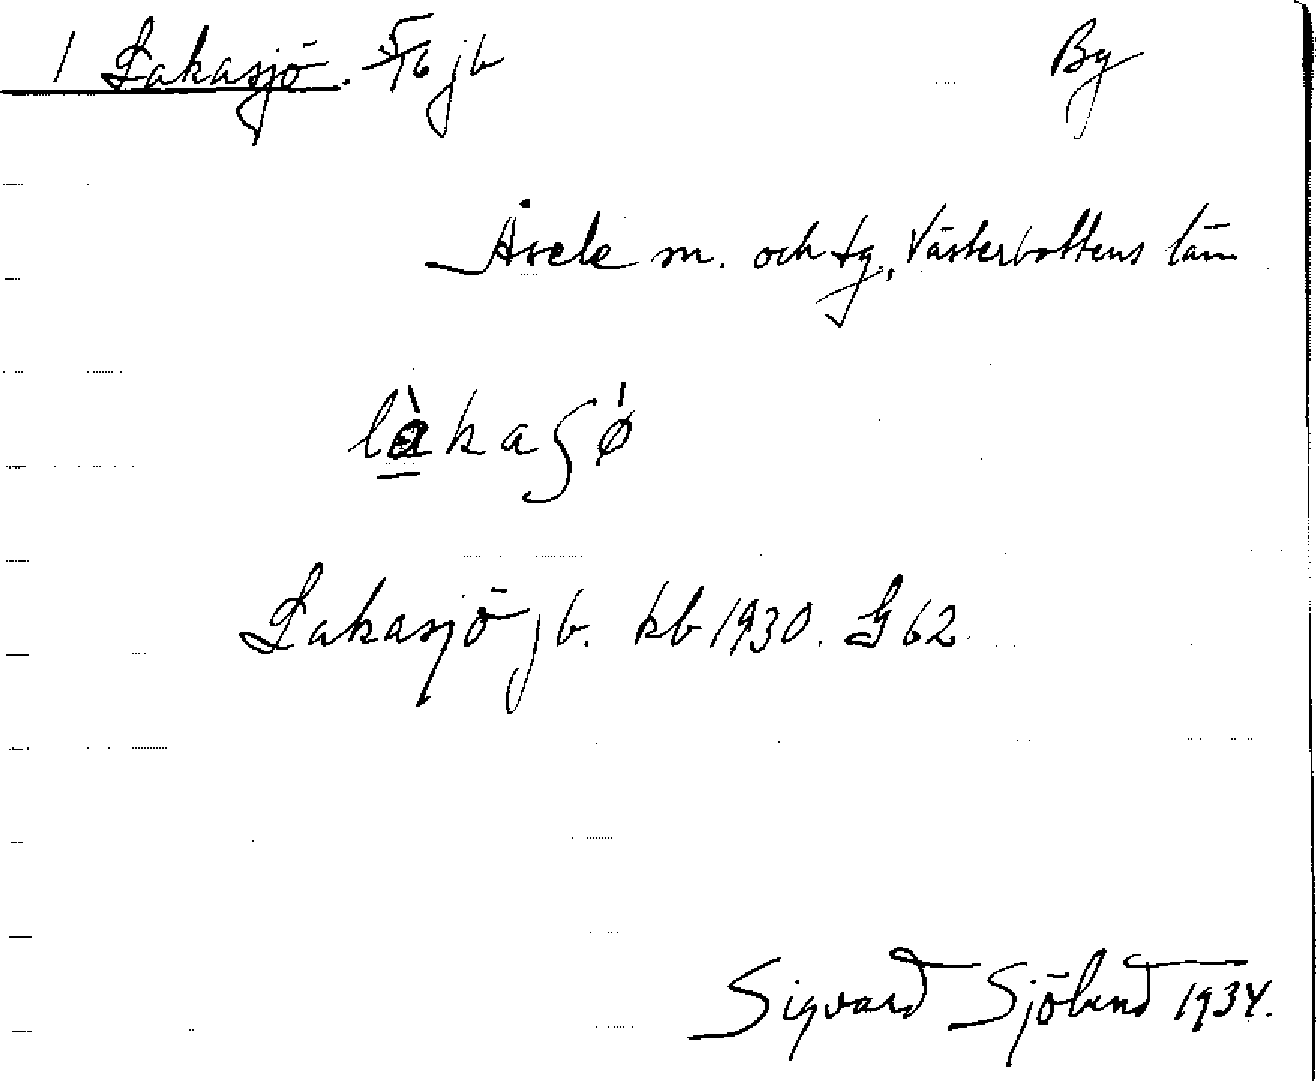 1 Lakasjö. 5/16 jb By
Åsele sn. och tg, Västerbottens län
là̲kaʃǿ
Lakasjö jb. kb 1930. G 62
Sigvard Sjölund 1934.